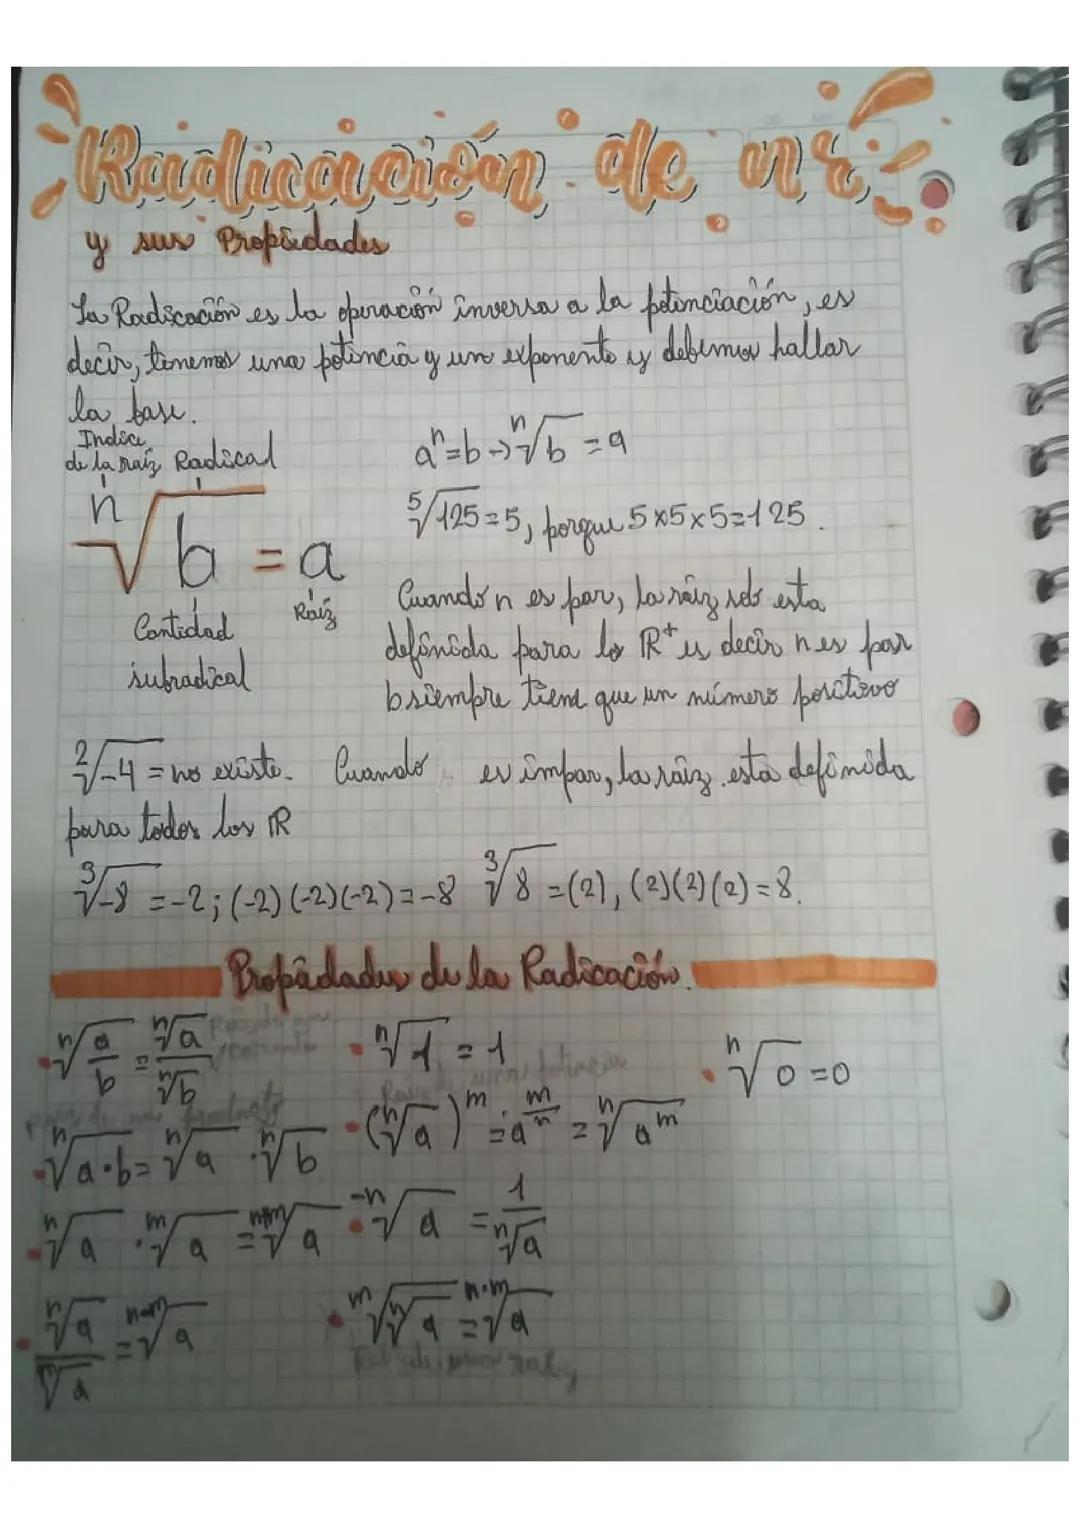 Radicación de nε
y sus Propiedades
La Radicación es la operación inversa a la potenciación, es
decir, tenemos una potencia y un exponente y debemos hallar
la base.
Indice
de la raíz Radical
n√b = a
Cantidad
subradical
Raíz
aⁿ=b→ⁿ√b = a
⁵√125=5, porque 5x5x5=125.
Cuando n es par, la raíz solo esta
definida para los R⁺ es decir n es par
b siempre tiene que un número positivo
²√-4 = no existe. Cuando es impar, la raíz esta definida
para todos los R
³√-8 = -2; (-2)(-2)(-2)=-8 ³√8 =(2), (2)(2)(2)=8.
Propiedades de la Radicación.
ⁿ√(a/b) = ⁿ√a/ⁿ√b
ⁿ√1 = 1
ⁿ√0 =0
Raiz de una potencia
Raiz de un producto
ⁿ√a·b= ⁿ√a · ⁿ√b
(ⁿ√a)ᵐ = a^(m/n) = ⁿ√aᵐ
ⁿ√a · ᵐ√a = ⁿ⁺ᵐ√a
⁻ⁿ√a = 1/ⁿ√a
ⁿ√a/ᵐ√a = ⁿ⁻ᵐ√a
ᵐ√ⁿ√a = ⁿ·ᵐ√a